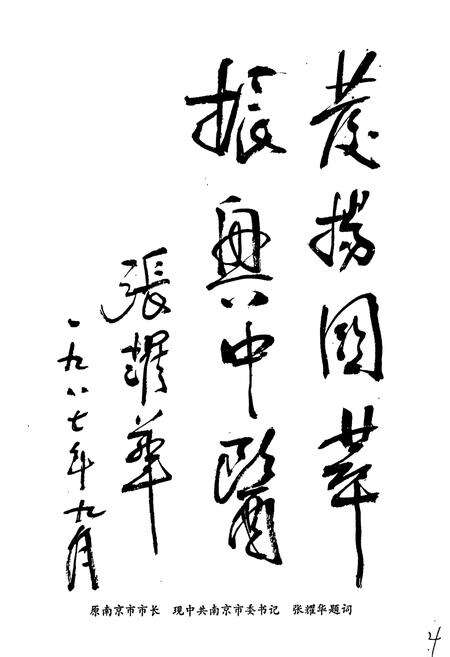 發揚國萃
振興中醫
張耀華
一九八七年九月
原南京市市长 现中共南京市委书记 张耀华题词
4